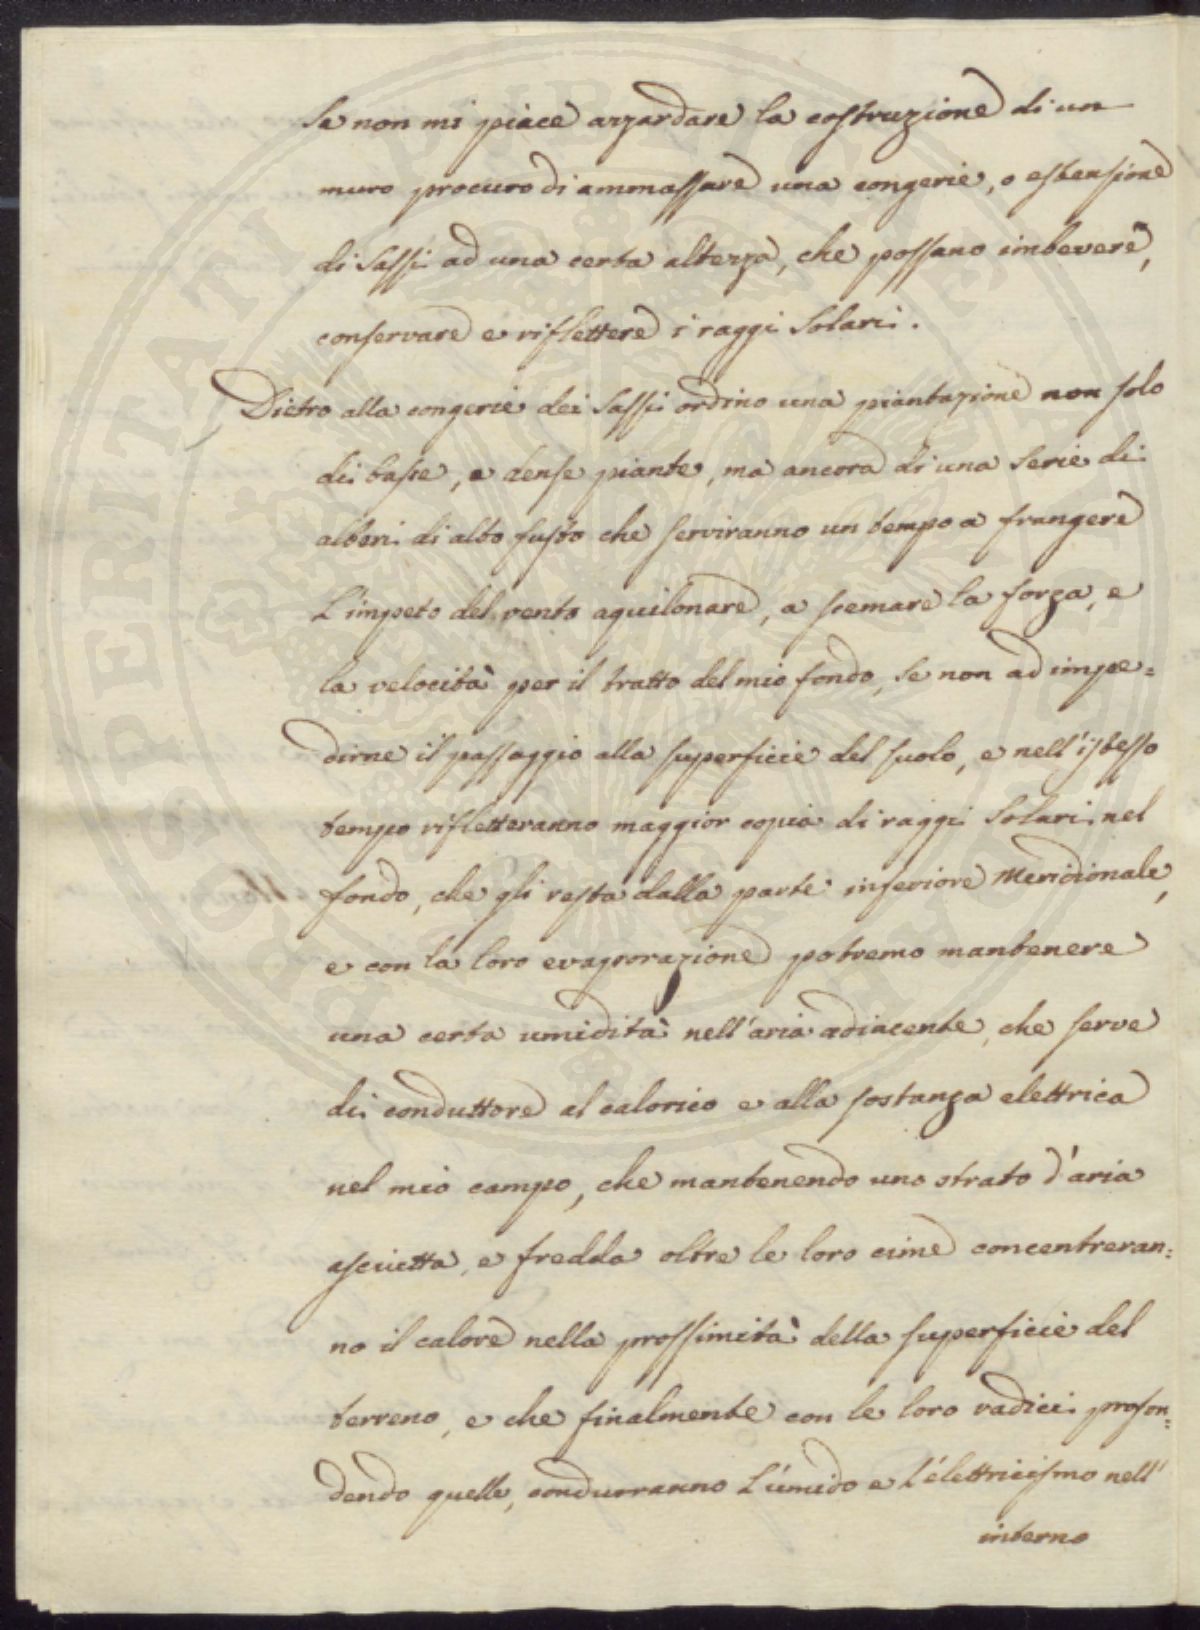 se non mi piace azzardare la costruzione di un
muro procuro di ammassare una congerie, o estensione
di sassi ad una certa altezza, che possano imbevere,
conservare e riflettere i raggi solari.
Dietro alla congerie dei sassi ordino una piantazione non solo
di basse, e dense piante, ma ancora di una serie di
alberi di alto fusto che serviranno un tempo a frangere
l'impeto del vento aquilonare, a scemare la forza, e
la velocità per il tratto del mio fondo, se non ad impe=
dirne il passaggio alla superficie del suolo, e nell'istesso
tempo rifletteranno maggior copia di raggi solari nel
fondo, che gli resta dalla parte inferiore Meridionale,
e con la loro evaporazione potremo mantenere
una certa umidità nell'aria adiacente, che serve
di conduttore al calorico e alla sostanza elettrica
nel mio campo, che mantenendo uno strato d'aria
asciutta, e fredda oltre le loro cime concentreran=
no il calore nella prossimità della superficie del
terreno, e che finalmente con le loro radici profon=
dendo quelle, condurranno l'umido e l'elettricismo nell'
interno
PROSPERITATI PUBLICAE